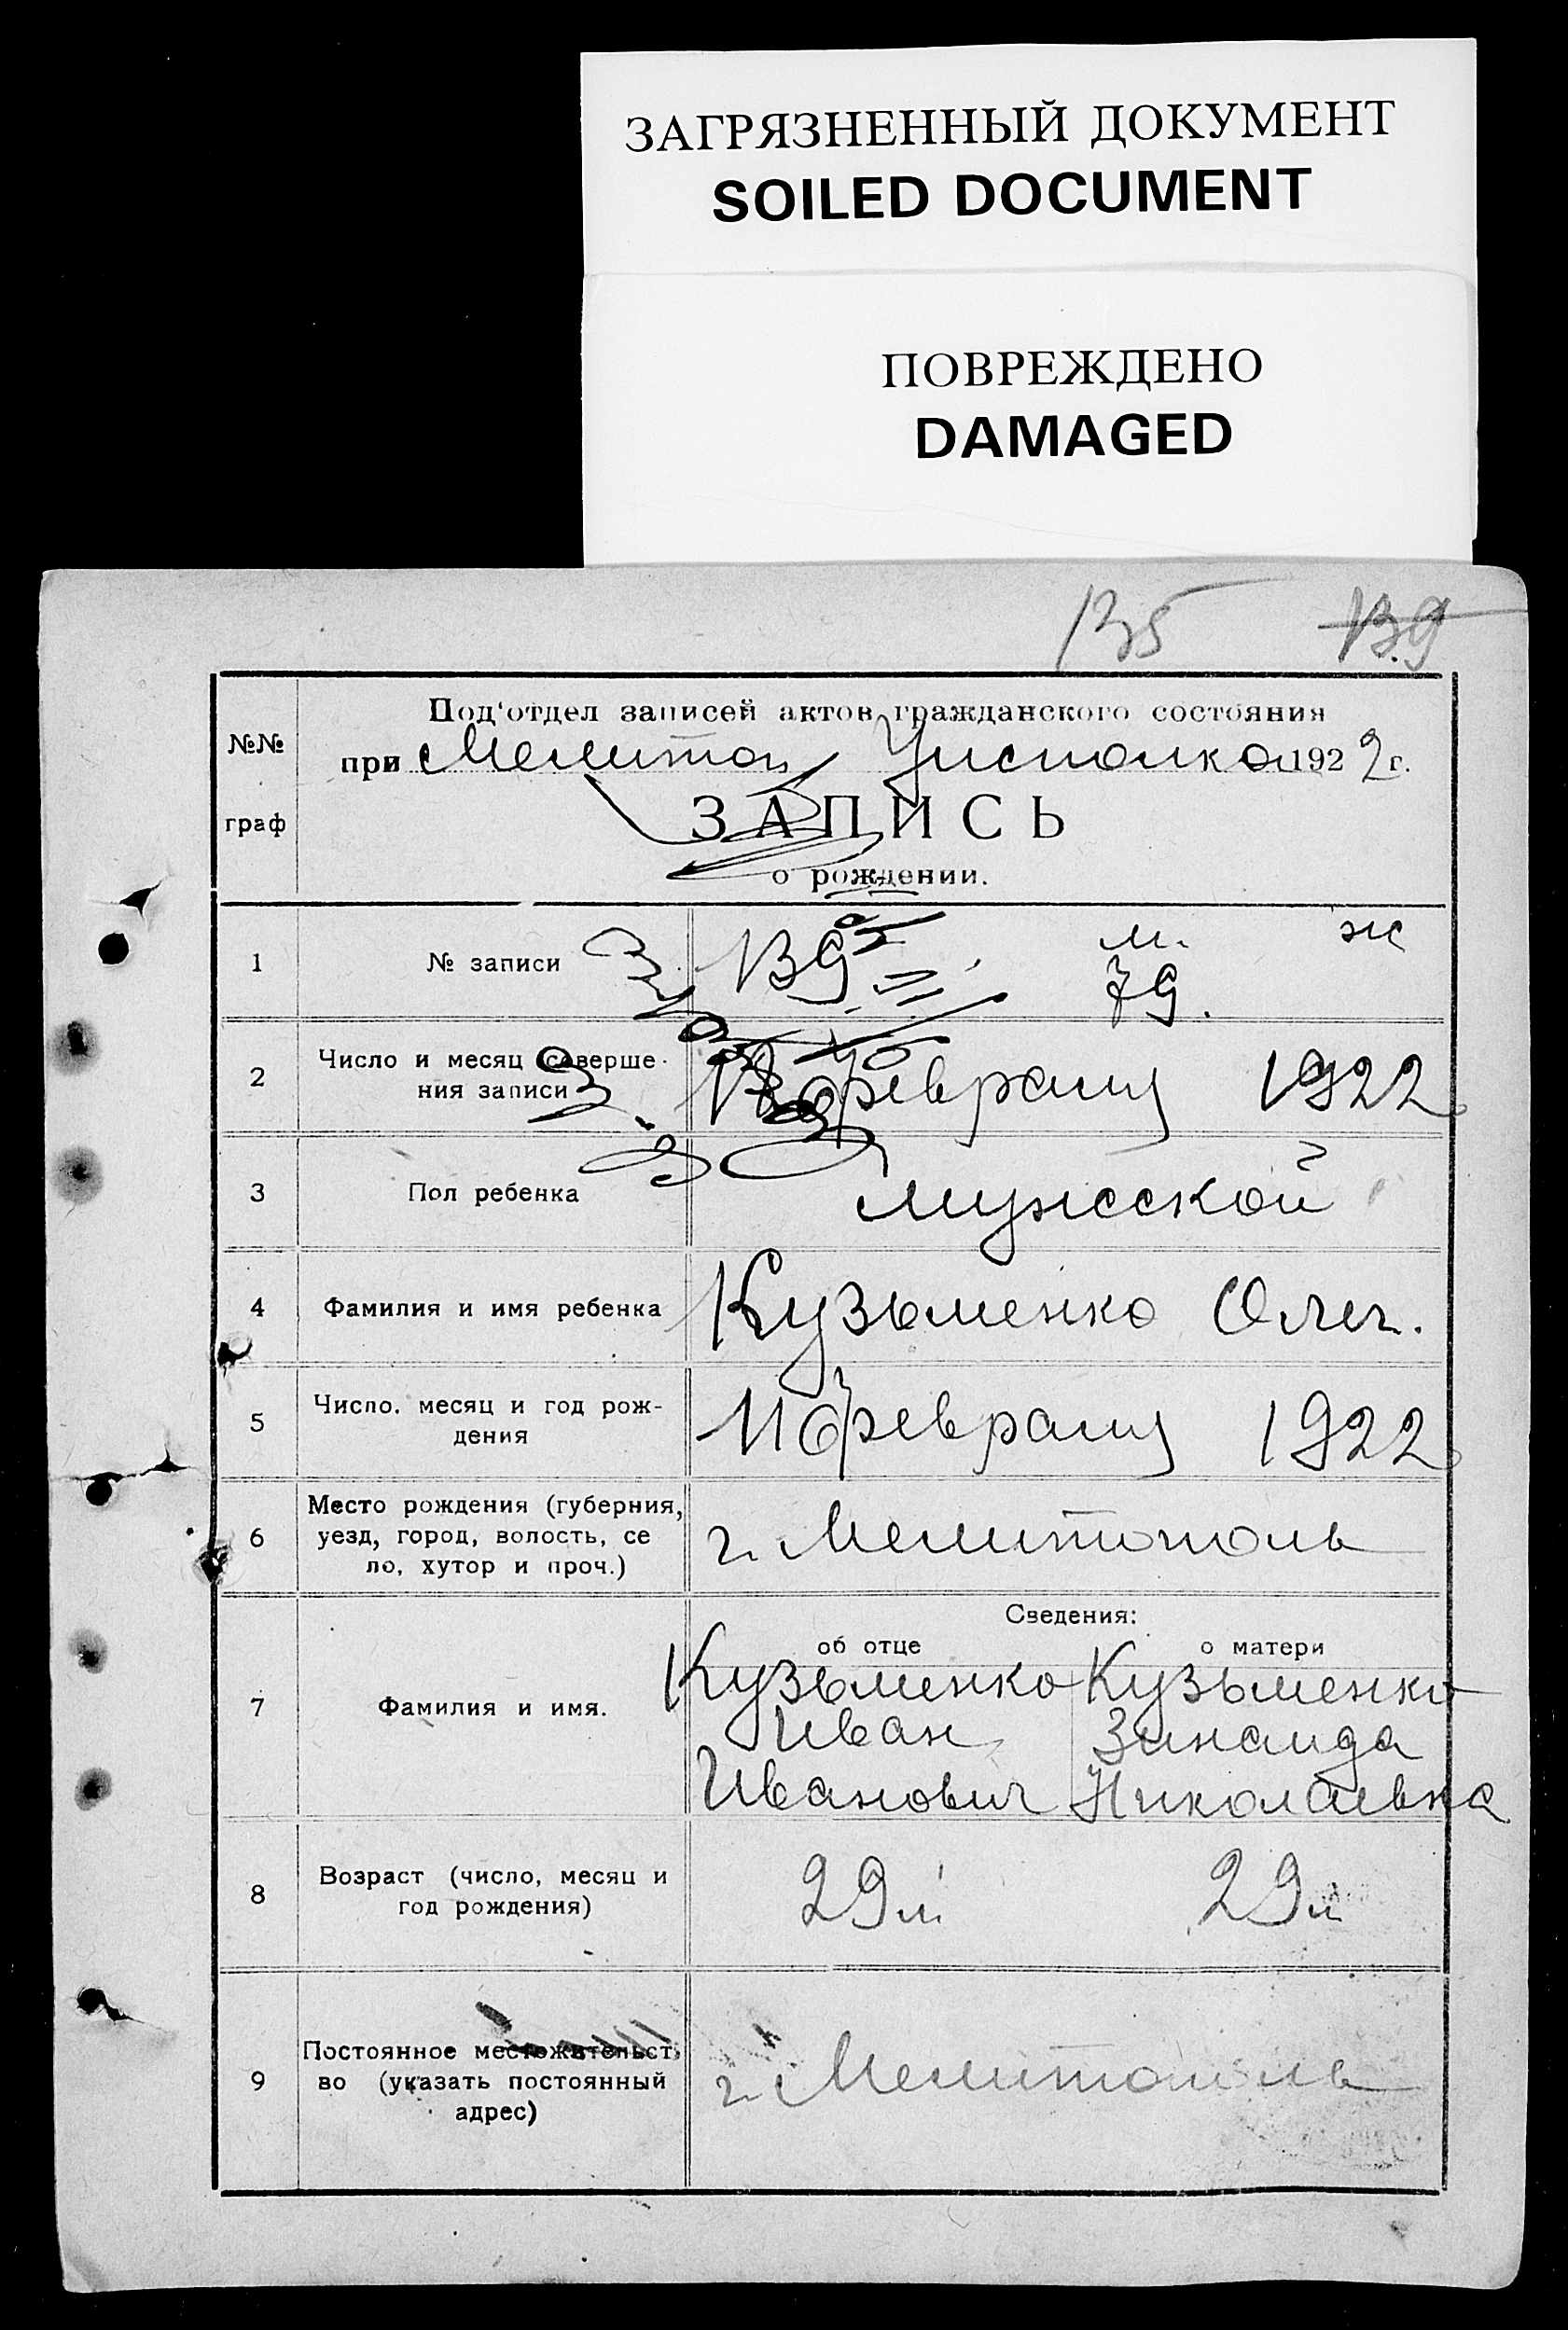 ЗАГРЯЗНЕННЫЙ ДОКУМЕНТ
SOILED DOCUMENT
ПОВРЕЖДЕНО
DAMAGED
135 139
Под'отдел записей актов гражданского состояния
№№
при Мелитоп Уисполко 1922 г.
граф
ЗАПИСЬ
о рождении.
м. ж
1 № записи 139 79.
2 Число и месяц соверше-
ния записи
февраля 1922
3 Пол ребенка мужской
4 Фамилия и имя ребенка Кузьменко Олег.
5 Число. месяц и год рож-
дения
11 февраля 1922
6 Место рождения (губерния,
уезд, город, волость, се
ло, хутор и проч.)
г. Мелитополь
Сведения:
об отце о матери
7 Фамилия и имя.
Кузьменко Кузьменко
Иван Зинаида
Иванович Николаевна
8 Возраст (число, месяц и
год рождения)
29 л. 29 л
9 Постоянное местожительст-
во (указать постоянный
адрес)
г. Мелитополь